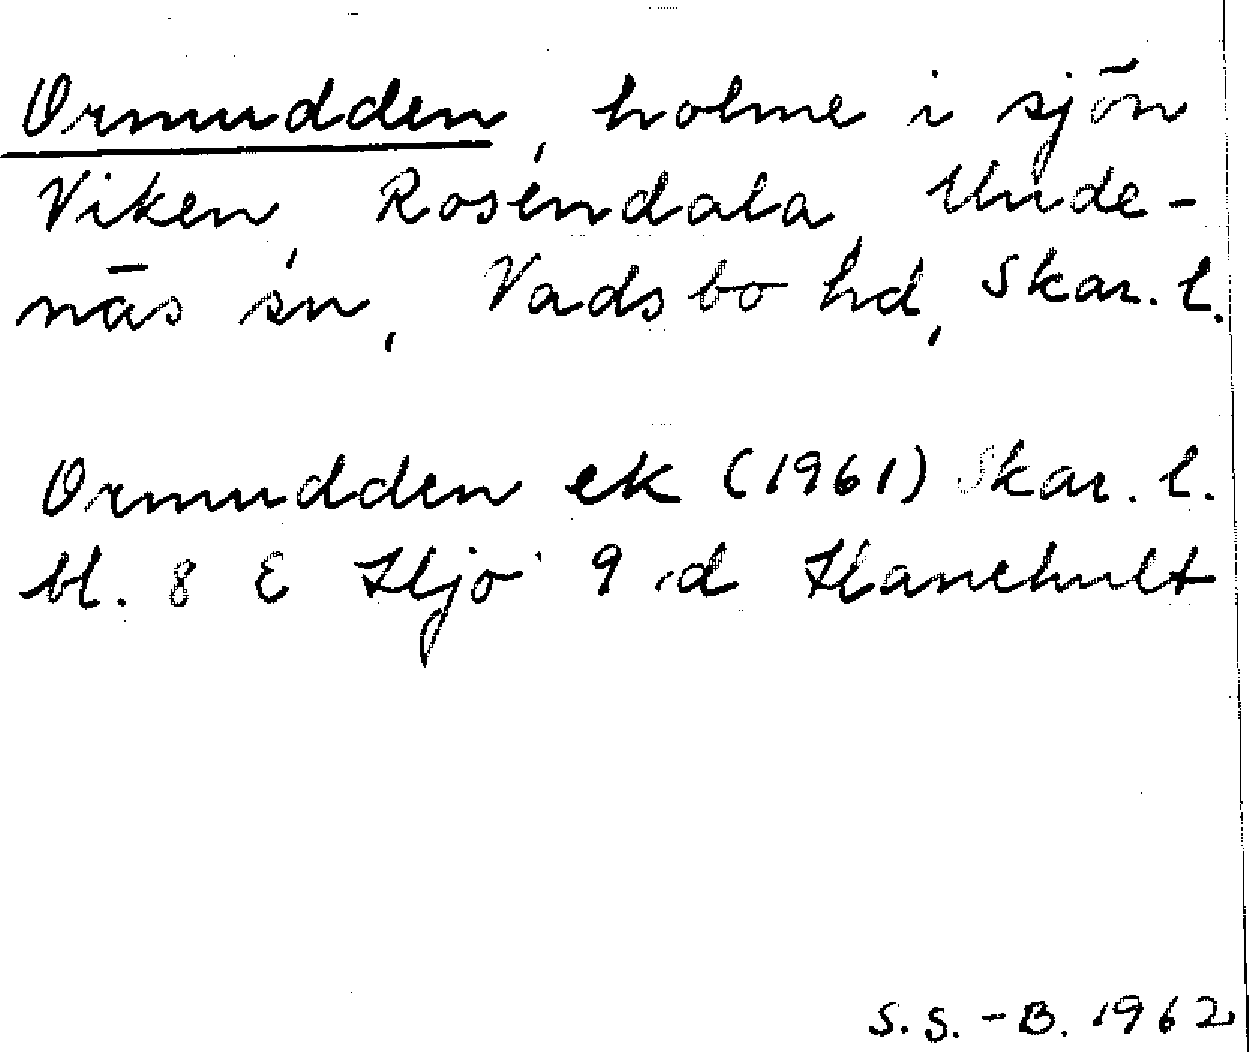 Ormudden, holme i sjön
Viken, Rosendala, Unde-
näs sn, Vadsbo hd, Skar. l.
Ormudden ek (1961) Skar. l.
bl. 8 E Hjo 9 d Hanehult
S. S. - B. 1962